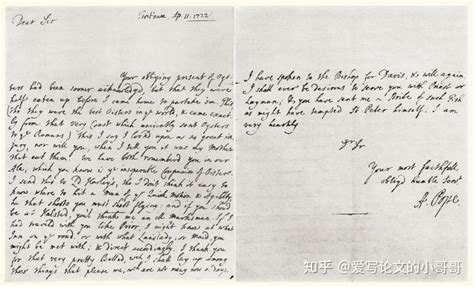 Dear Sir
Ap. 11. 1722
Your obliging present of Oys-
ters had been sooner acknowledg'd, but that they were
half eaten up before I came home to partake 'em. This
I say they were the best Oisters in ye world, & came exact-
ly from that very Coast which anciently sent Oysters
to ye Romans) this I say I lookd upon as so great in-
jury, nor will you, when I tell you it was my Mother
that eat them. We have both remembred you in our
Ale, which you know is ye inseparable Companion of Oisters.
I read this to Ld Harley's, tho I don't think it easy to
know where to find a Man of ye Quick motion & Agility
he that shoots you must shoot flying: and if you should
be at Halsted, you'd thank me an ill Marksman. If I
had traveld with you like Prior, I might know at what
Inn on ye road, or with what Landlady, or Maid you
might be met with; & direct accordingly. I thank you
for that very pretty Ballad, wch I shall lay up among
those things that please me, wch are not many now a days.
I have spoken to the Bishop for Davis, & will again
I shall ever be desirous to serve you with Priest or
Layman; & you have sent me a Bribe of such Fish
as might have tempted St Peter himself. I am
very heartily
Dr Sir
Your most faithfull
obligd humble Servt
A. Pope
知乎 @爱写论文的小哥哥